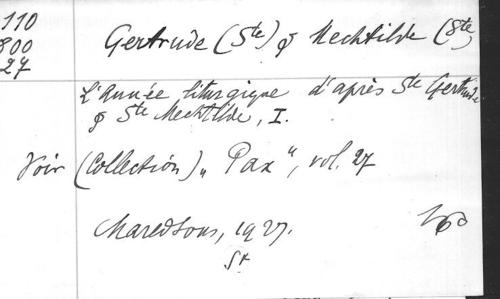 110
800
27
Gertrude (Ste) & Mechtilde (Ste)
L'année liturgique d'après Ste Gertrude
& Ste Mechtilde, I.
Voir (Collection) „ Pax ", vol. 27
Maredsous, 1927.